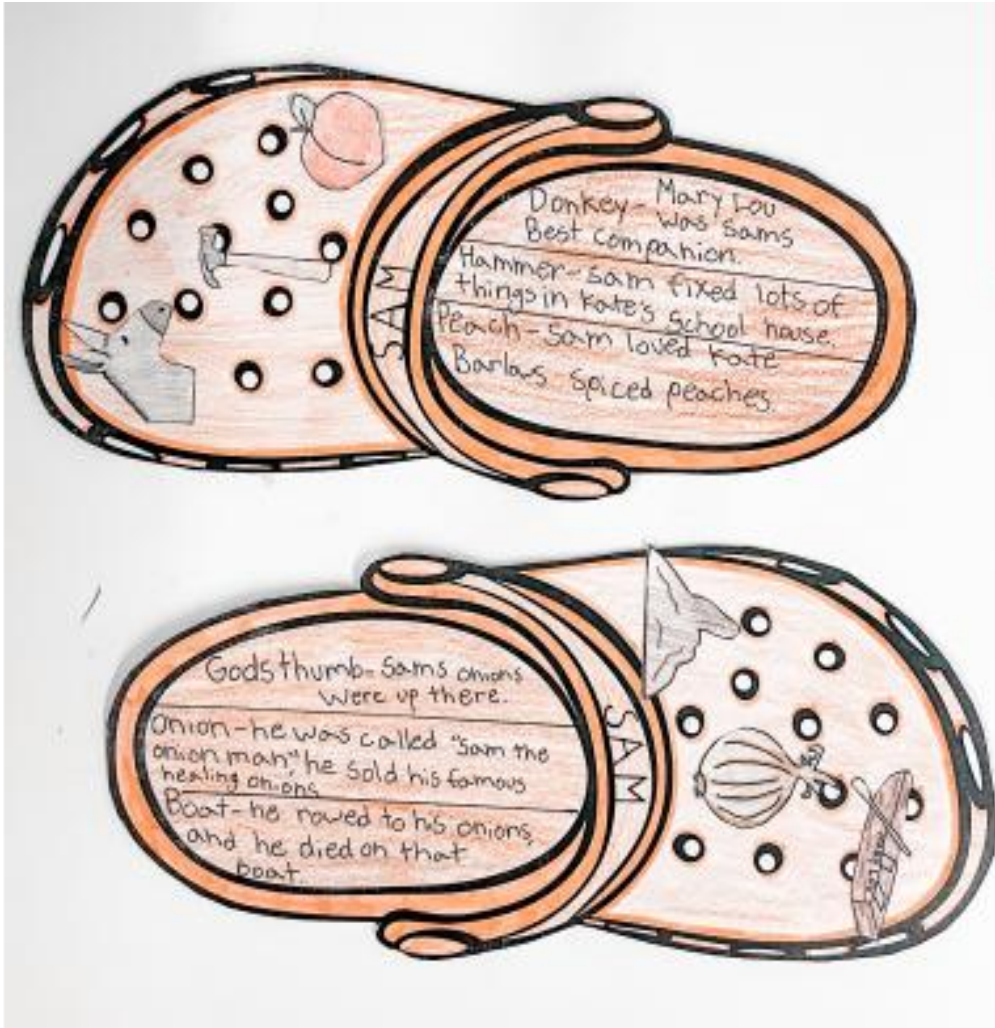 Donkey - Mary Lou
was Sams
Best companion.
Hammer - Sam fixed lots of
things in Kate's School house.
Peach - Sam loved Kate
Barlows spiced peaches.
SAM
Gods thumb - Sams onions
were up there.
Onion - he was called "Sam the
onion man", he sold his famous
healing onions
Boat - he rowed to his onions,
and he died on that
boat.
SAM